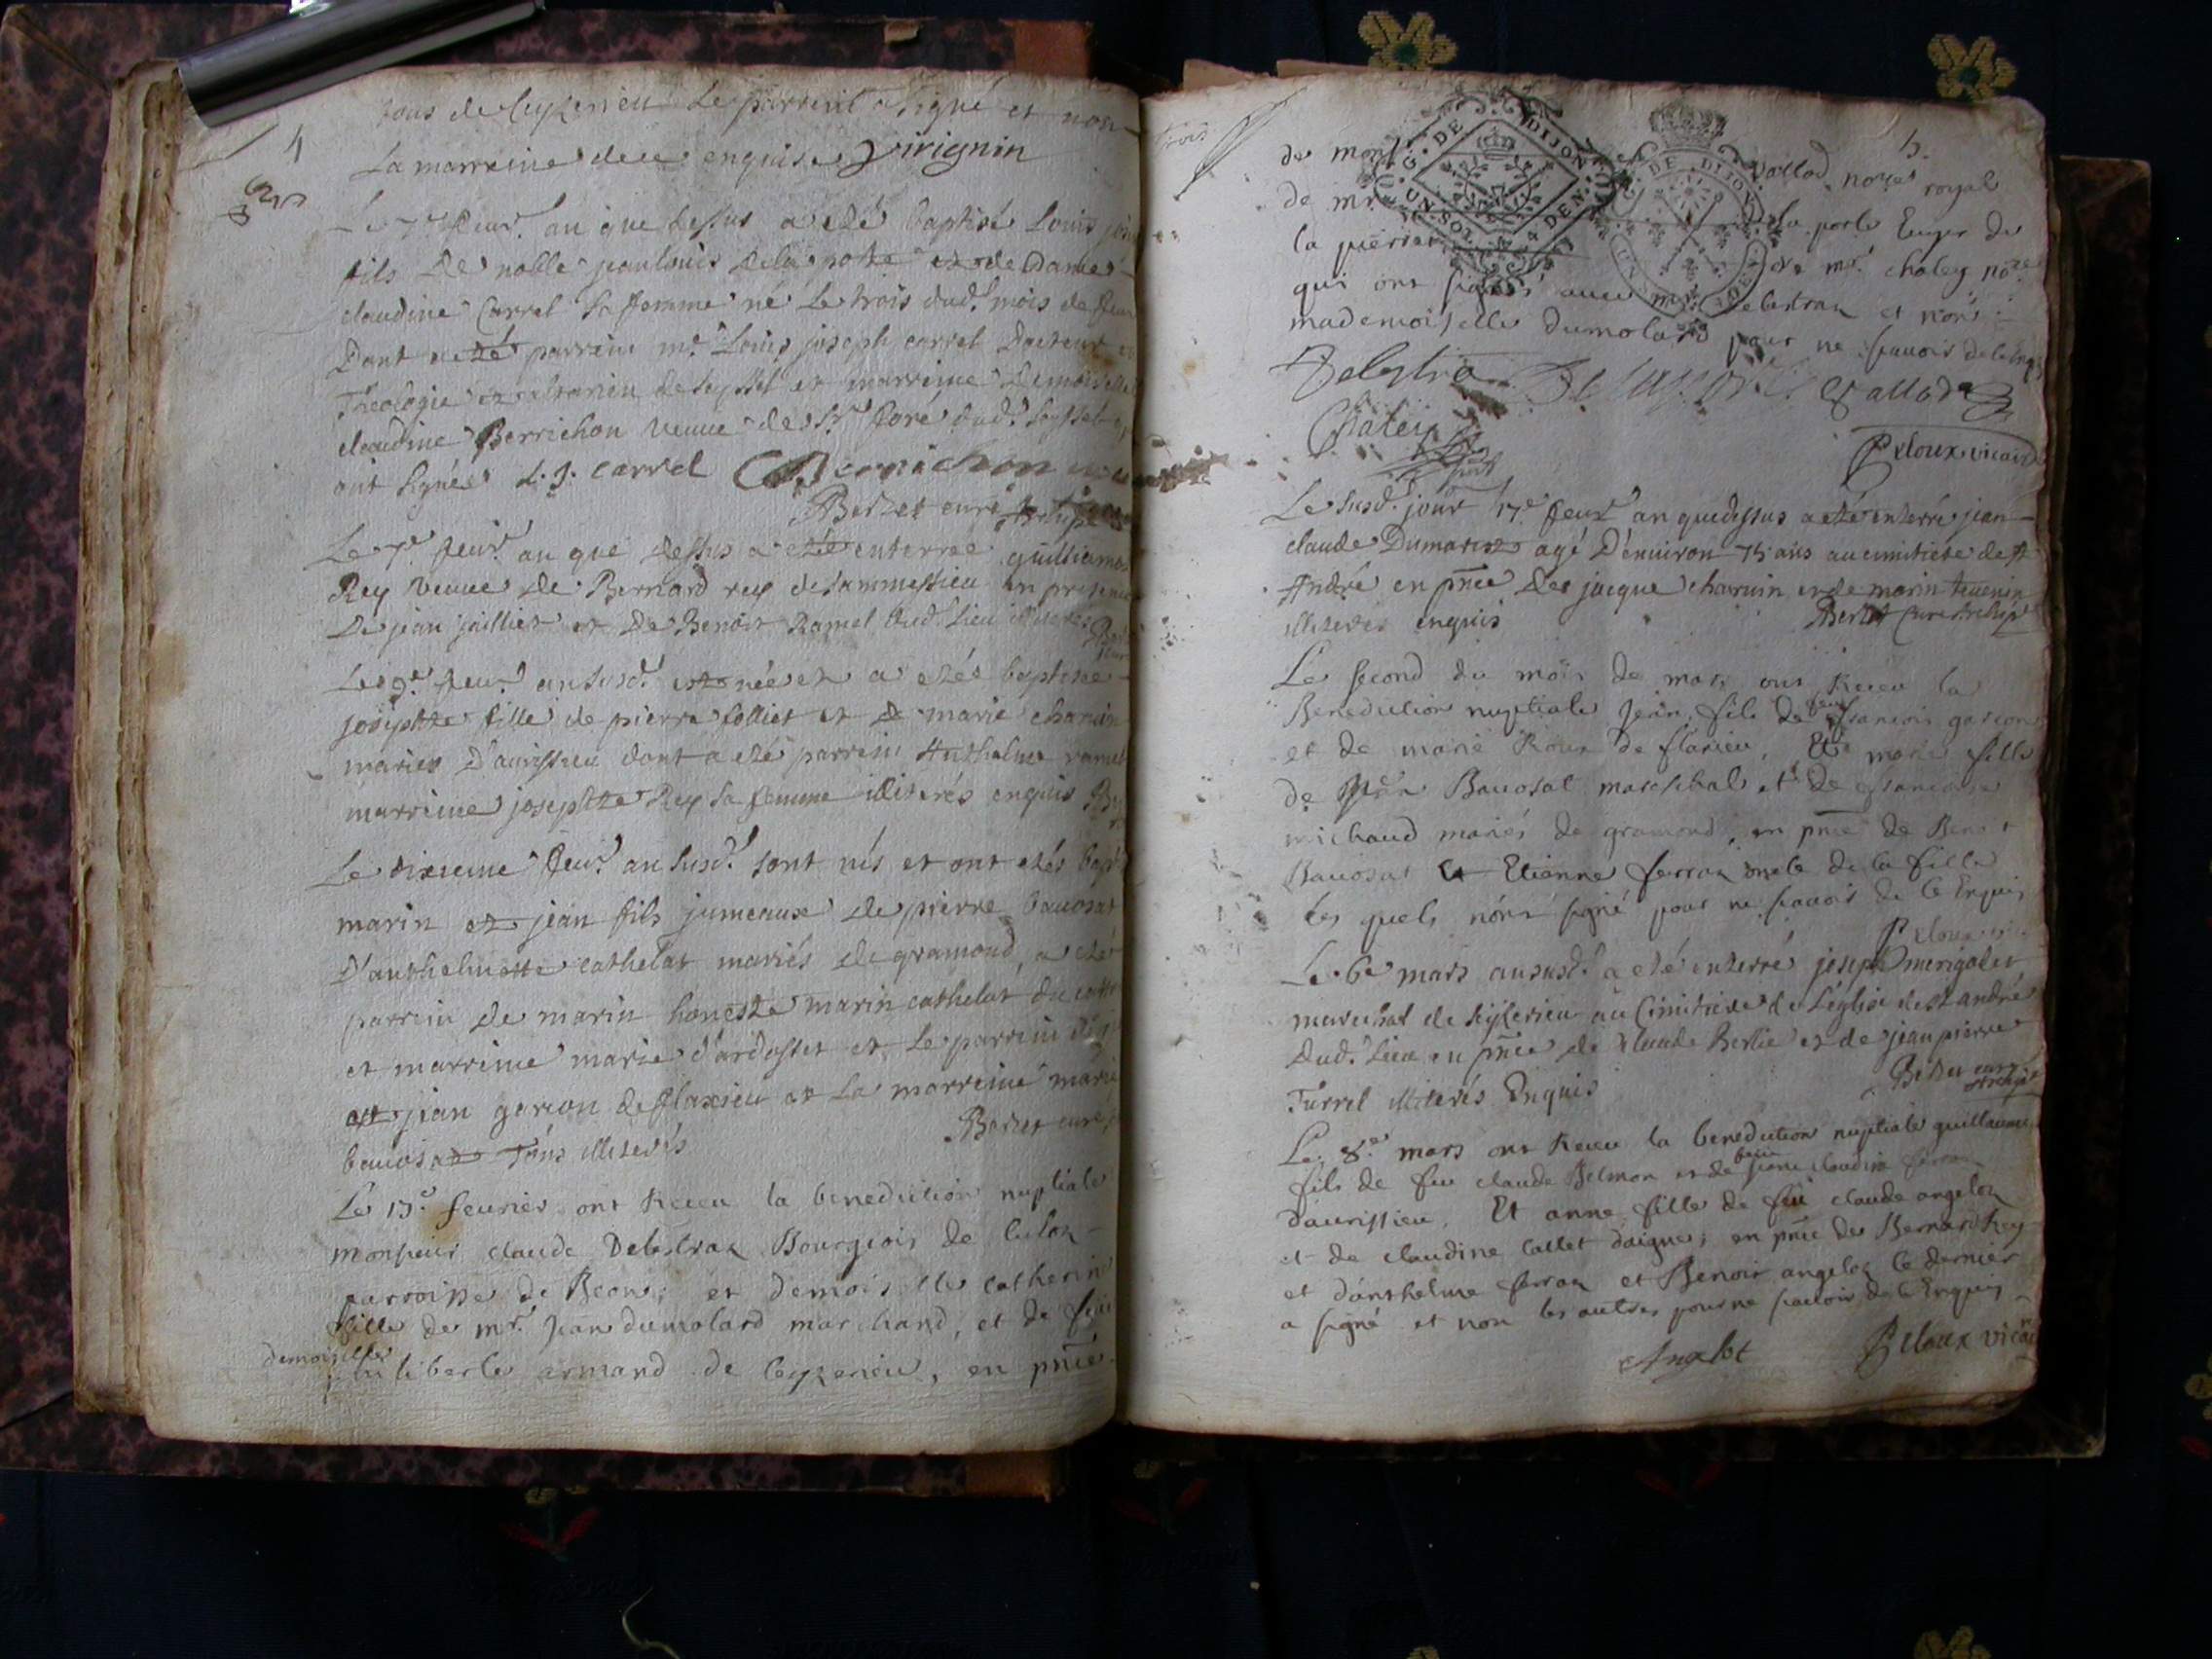 4
tous de Ceyzerieu Le parrein a signé et non
La marreine de ce enquise virignin
Le 7e feur. an que dessus a eté baptisé Louis
fils de noble jean louis dela porte et de Dame
claudine Carrel sa femme né Le trois dud. mois de feur
Dont a eté parrein mr. Louis joseph carrel Docteur
Theologie de seyssel et marreine Demoiselle
claudine Berrichon veuve de sr. dud. seyssel
ont signés L. J. Carrel Berrichon
Berzet curé
Le 7e feur. an que dessus a eté enterree
Rey veuve de Bernard rey de sammessieu en presence
De jean jaillier et De Benoit Ramel dud. Lieu illiterés
Le 9e feur. an susd. est née et a etée baptisée
josephte fille de pierre folliet et de marie
mariés D'aurissieu dont a eté parrein Anthelme ramel
marreine josephte Rey sa femme illiterés enquis
Le dixieme feur. an susd. sont nés et ont etés
marin et jean fils jumeaux de pierre bauosat
D'anthelmette cathelat mariés de gramond, a eté
parrein de marin honeste marin cathelat
et marreine marie d'ardosset et Le parrein de
est jean garson de flaxieu et La marreine marie
bauosat Tous illiterés Berzet curé
Le 13e feurier ont Receu la benediction nuptiale
monsieur claude Delestraz Bourgeois de culoz
parroisse de Beon; et demoiselle catherine
fille de mr. Jean dumolard marchand, et de feüe
demoiselle
philiberte armand de ceyzerieu, en pnce
5.
de vallod nore royal
de mr. la porte
la de mr. chaley nore
qui ont signés auec mr. Delestraz et non
mademoiselle dumolard pour ne scauoir de ce enquis
Delestra vallod
Chalei
Peloux vicaire
Le susd. jour 17e feur an que dessus a eté enterré jean
claude Dumarest agé D'enuiron 75 ans au cimitiere de st
André en pnce de jacque charuin et de marin teuenin
illiterés enquis Berzet curé
Le second du mois de mars ont Receu la
Benediction nuptiale Jean fils de feu francois garson
et de marie Roux de flaxieu, Et marie fille
de Bauosat mareschal et de francoise
michaud mariés de gramond, en pnce de Benoit
Bauosat et Etienne ferraz oncle de la fille
les quels n'ont signé pour ne scauoir de ce Enquis
Peloux
Le 6e mars an susd. a eté enterré joseph merigodet
marechal de seyzerieu au Cimitiere de L'église de st andré
dud. Lieu en pnce de claude Berlie et de jean pierre
Turrel illiterés Enquis Berzet curé
Le 8e mars ont Receu la benediction nuptiale guillaume
fils de feu claude Belmon et de claudine ferraz
d'aurissieu, Et anne fille de feu claude angeloz
et de claudine callet daignes; en pnce de Bernard Rey
et d'anthelme ferraz et Benoit angeloz le dernier
a signé et non les autres pour ne scauoir de ce Enquis
Angelot Peloux vicaire
G. DE DIJON
4 DEN.
G. DE DIJON